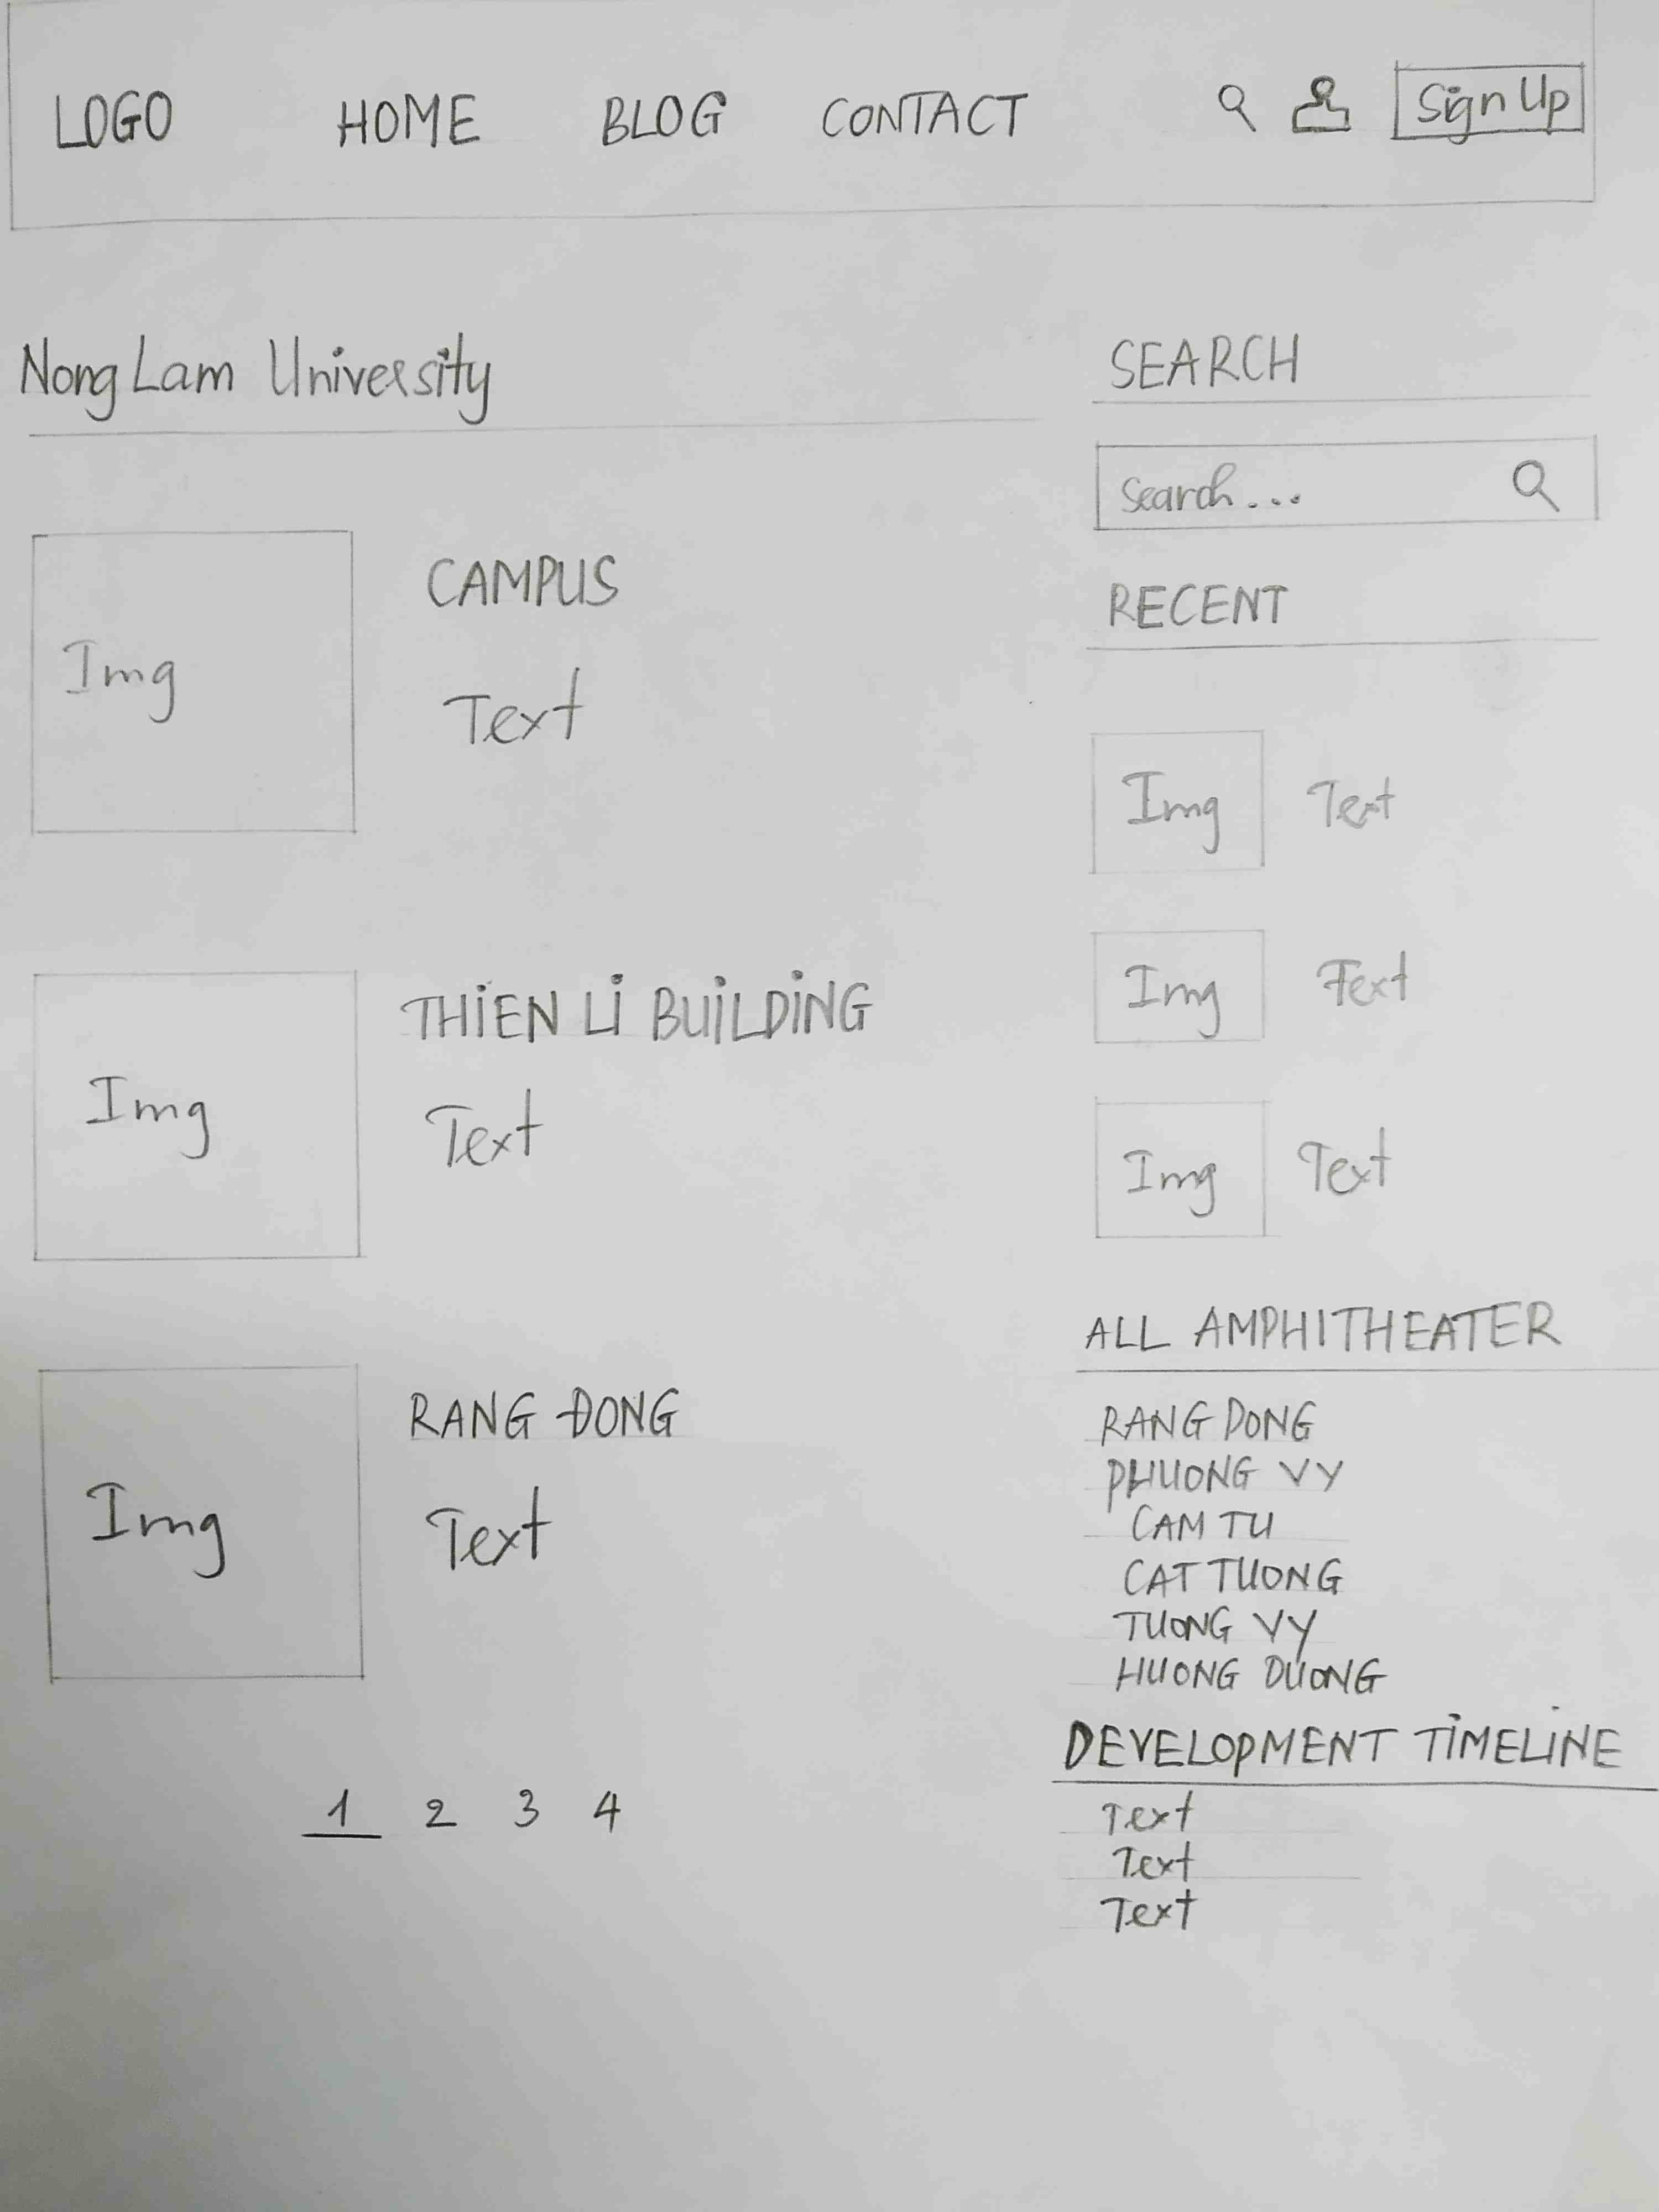 LOGO HOME BLOG CONTACT Sign Up
Nong Lam University
Img
CAMPUS
Text
Img
THIEN LI BUILDING
Text
Img
RANG ĐONG
Text
1 2 3 4
SEARCH
Search...
RECENT
Img Text
Img Text
Img Text
ALL AMPHITHEATER
RANG DONG
PHUONG VY
CAM TU
CAT TUONG
TUONG VY
HUONG DUONG
DEVELOPMENT TIMELINE
Text
Text
Text